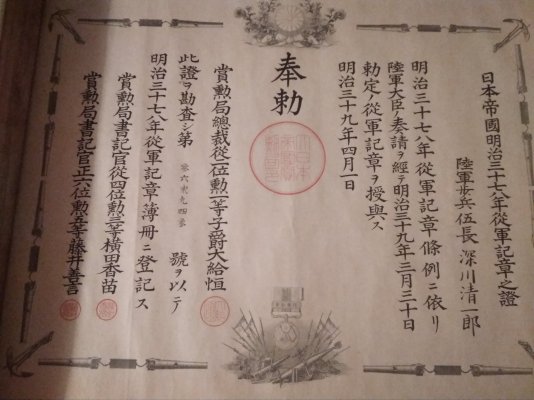 日本帝國明治三十七八年從軍記章之證
陸軍歩兵伍長 深川清一郎
明治三十七八年從軍記章條例ニ依リ
陸軍大臣ノ奏請ヲ經テ明治三十九年三月三十日
勅定ノ從軍記章ヲ授與ス
明治三十九年四月一日
奉勅
賞勲局總裁從二位勲一等子爵大給恒
此證ヲ勘査シ第 號ヲ以テ
明治三十七八年從軍記章簿冊ニ登記ス
賞勲局書記官從四位勲三等横田香苗
賞勲局書記官正六位勲五等藤井善言